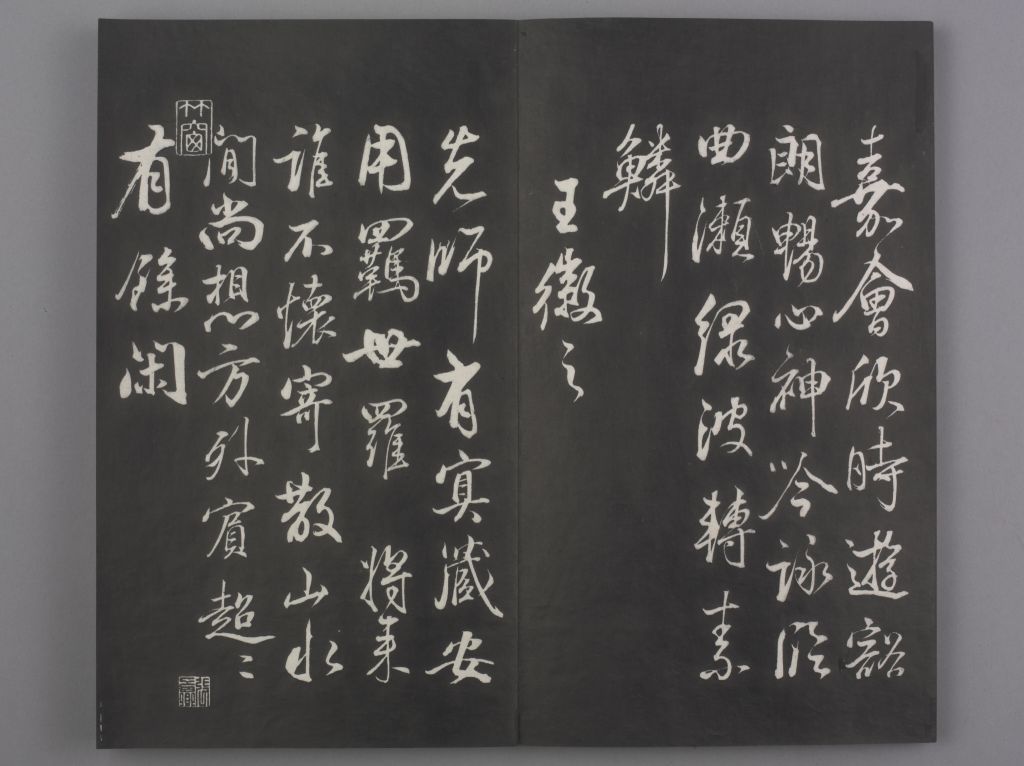 嘉會欣時遊豁
朗暢心神吟詠臨
曲瀨綠波轉素
鱗
王徽之
先師有冥藏安
用羈世羅將來
誰不懷寄散山水
間尚想方外賓超〻
有餘閑
竹窗